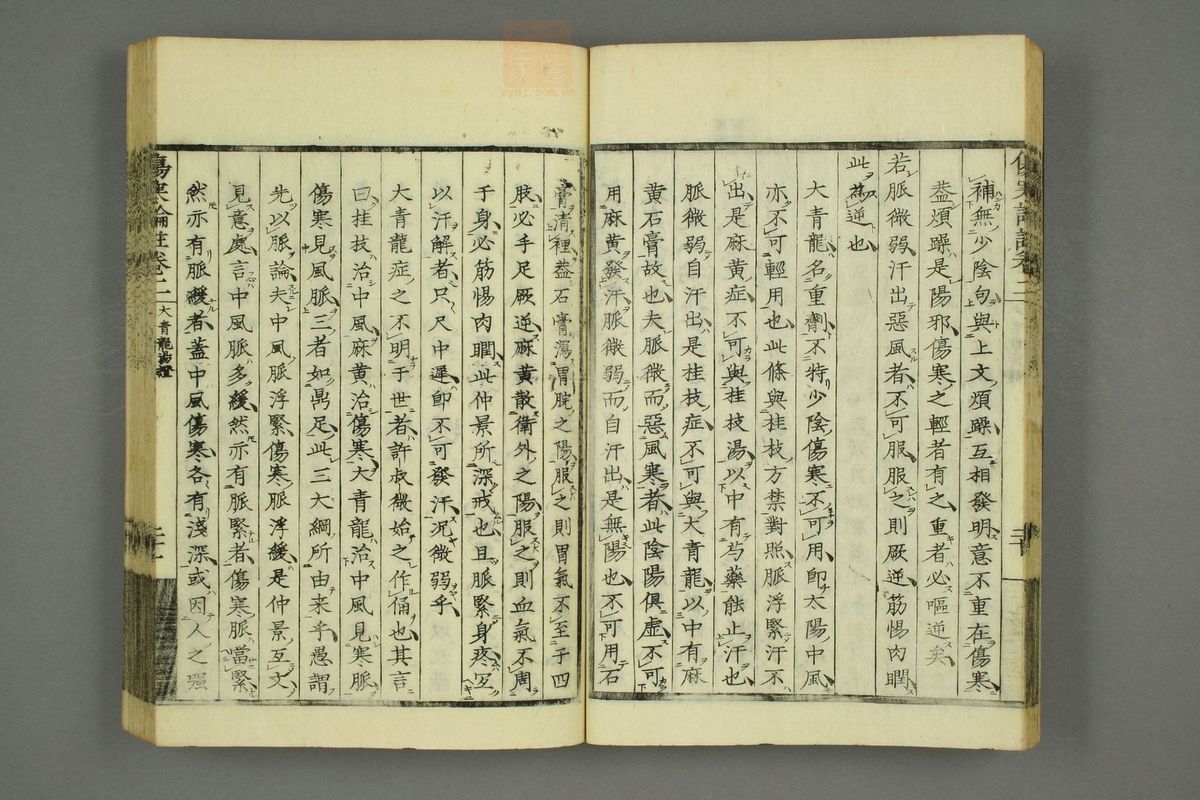 補無少陰句與上文煩躁互相發明意不重在傷寒
蓋煩躁是陽邪傷寒之輕者有之重者必嘔逆矣
若脈微弱汗出惡風者不可服服之則厥逆筋惕肉瞤
此為逆也
大青龍名重劑不特少陰傷寒不可用即太陽中風
亦不可輕用也此條與桂枝方禁對照脈浮緊汗不
出是麻黃症不可與桂枝湯以中有芍藥能止汗也
脈微弱自汗出是桂枝症不可與大青龍以中有麻
黃石膏故也夫脈微而惡風寒者此陰陽俱虛不可
用麻黃發汗脈微弱而自汗出是無陽也不可用石
膏清裡蓋石膏瀉胃脘之陽服之則胃氣不至于四
肢必手足厥逆麻黃散衛外之陽服之則血氣不周
于身必筋惕肉瞤此仲景所深戒也且脈緊身疼宜
以汗解者只尺中遲即不可發汗況微弱乎
大青龍症之不明于世者許叔微始之作俑也其言
曰桂枝治中風麻黃治傷寒大青龍治中風見寒脈
傷寒見風脈三者如鼎足此三大綱所由来乎愚謂
先以脈論夫中風脈浮緊傷寒脈浮緩是仲景互文
見意處言中風脈多緩然亦有脈緊者傷寒脈當緊
然亦有脈緩者蓋中風傷寒各有淺深或因人之强
傷寒論註卷二
大青龍湯證